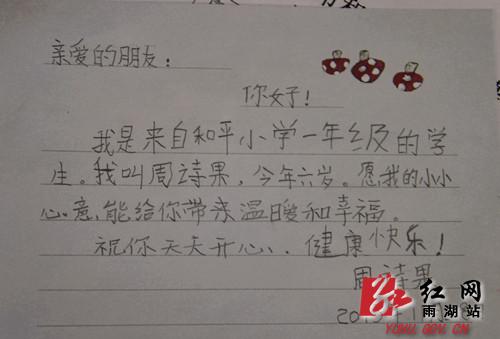 亲爱的朋友：
你好！
我是来自和平小学一年级的学
生。我叫周诗果，今年六岁。愿我的小小
心意，能给你带来温暖和幸福。
祝你天天开心、健康快乐！
周诗果
红网
雨湖站
YUHU.GOV.CN